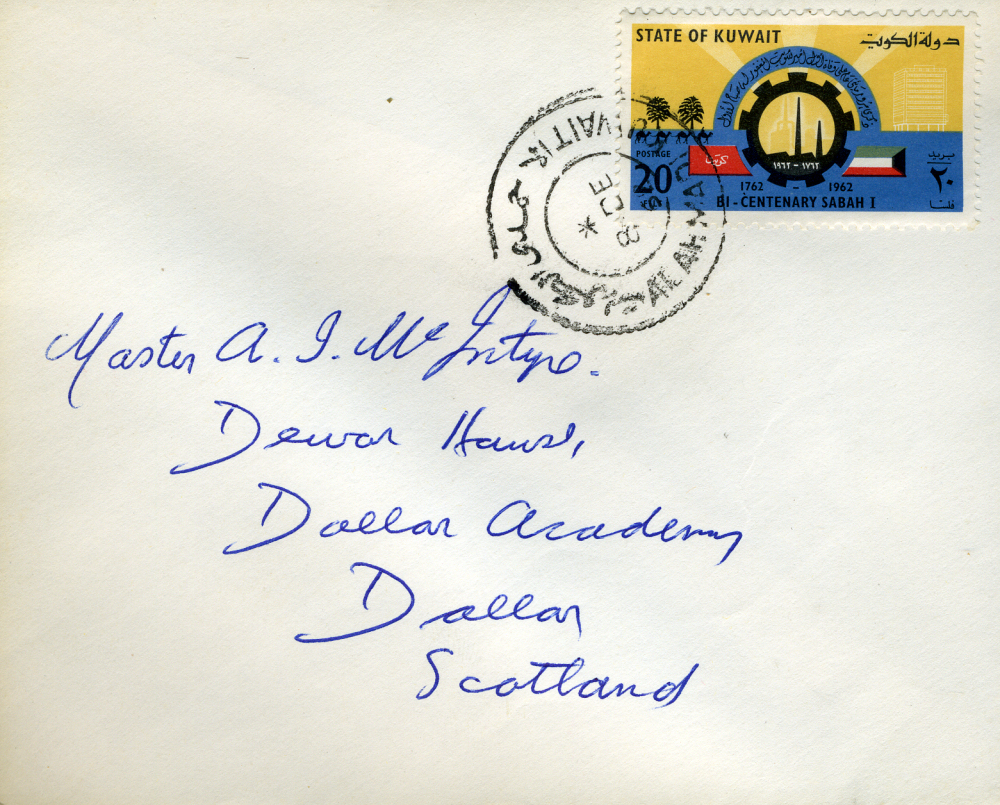 STATE OF KUWAIT دولة الكويت
POSTAGE
20
كويت
١٩٦٢ - ١٧٦٢
بريد
٢٠
فلسا
1762 - 1962
BI-CENTENARY SABAH I
AL AHMADI KUWAIT
8 DE
Master A. I. McIntyre.
Dewar House,
Dollar Academy
Dollar
Scotland